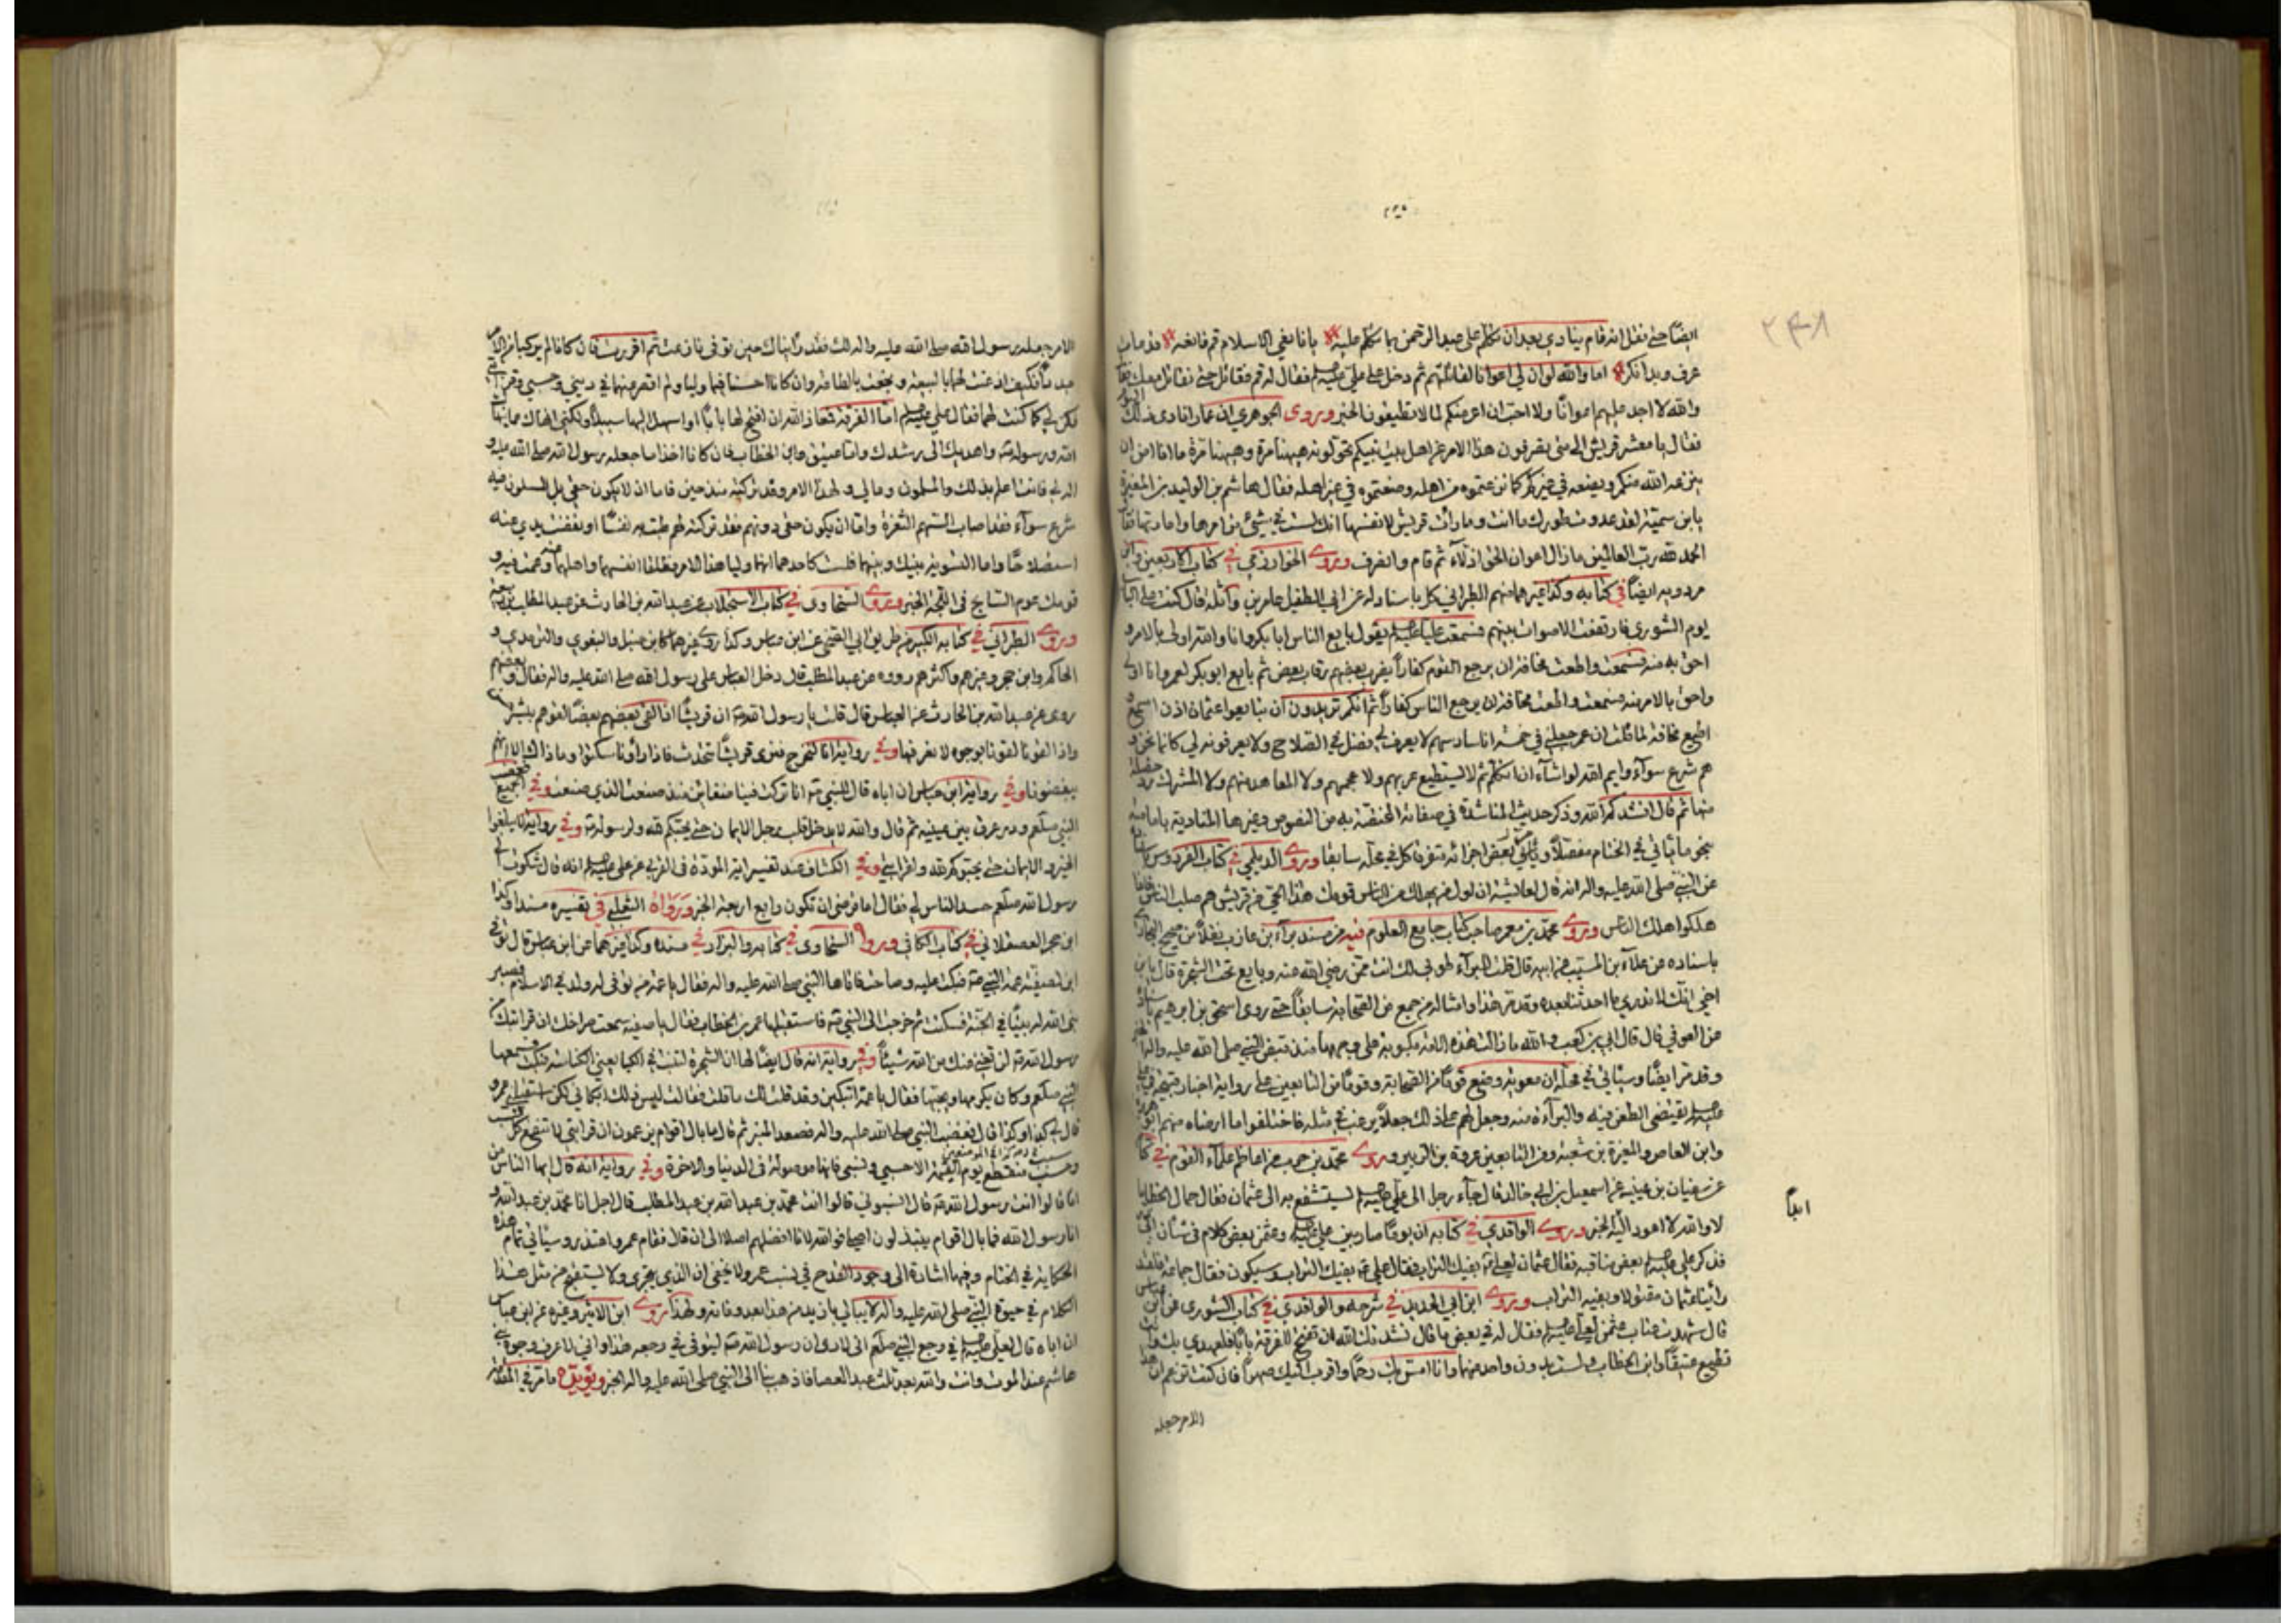 ۲۴۸
ايضاً حتى نقل انه قام ينادي بعد ان تكلم على عبد الرحمن بما تكلم عليه يا ناعي الاسلام قم فانعه قد مات
عرف وبدا نكر اما والله لو ان لي اعوانا لقاتلتهم ثم دخل على علي فقال له قم فقاتل حتى نقاتل معك فقال
والله لا اجد عليهم اعوانا ولا احب ان اعرضكم لما لا تطيقون الخبر وروى الجوهري ان عمارا نادى ذلك
فقال يا معشر قريش الى متى تصرفون هذا الامر عن اهل بيت نبيكم تحولونه ههنا مرة وههنا مرة ما انا امن ان
ينزعه الله منكم ويضعه في غيركم كما نزعتموه من اهله وضعتموه في غير اهله فقال هاشم بن الوليد بن المغيرة
يا بن سمية لقد عدوت طورك ما انت وما رأت قريش لانفسها انك لست في شيء من امرها واماراتها فقال
الحمد لله رب العالمين ما زال اعوان الحق اذلاء ثم قام وانصرف وروى الخوارزمي في كتاب الاربعين وابن
مردويه ايضاً في كتابه وكذا غيرهما منهم الطبراني كل باسناد له عن ابي الطفيل عامر بن واثلة قال كنت على الباب
يوم الشورى فارتفعت الاصوات بينهم فسمعت عليا يقول بايع الناس ابا بكر وانا والله اولى بالامر و
احق به منه فسمعت واطعت مخافة ان يرجع القوم كفاراً يضرب بعضهم رقاب بعض ثم بايع ابو بكر لعمر وانا اولى
واحق بالامر منه فسمعت واطعت مخافة ان يرجع الناس كفاراً ثم انكم تريدون ان تبايعوا عثمان اذن اسمع و
اطيع مخافة لما قلت ان عمر جعلني في خمسة انا سادسهم لا يعرف لي فضل في الصلاح ولا يعرفونه لي كانما نحن و
هم شرع سواء وايم الله لو اشاء ان اتكلم ثم لا يستطيع عربهم ولا عجمهم ولا المعاهد منهم ولا المشرك رد خصلة
منها ثم قال انشدكم الله وذكر حديث المناشدة في صفاته المختصة به من النصوص وغيرها المنادية بامامته
نحو ما يأتي في الختام مفصلاً ويأتي بعض اجزائه متفرقا كل في محله سابقا وروى الديلمي في كتاب الفردوس
عن النبي صلى الله عليه واله انه قال لعائشة ان اول من يهلك من الناس قومك هذا الحي من قريش هم صلب الناس فاذا
هلكوا هلك الناس وروى محمد بن معمر صاحب كتاب جامع العلوم فيه من مسند براء بن عازب نقلاً من صحيح البخاري
باسناده عن علاء بن المسيب عن ابيه قال قلت للبراء طوبى لك انت ممن رضي الله عنه وبايع تحت الشجرة قال يا بن
اخي انك لا تدري ما احدثنا بعده وقد مر هذا وامثاله من جمع من الصحابة سابقاً حتى روى اسحق بن ابراهيم
عن العوفي قال قال ابي بن كعب والله ما زالت هذه الامة مكبوبة على وجهها منذ قبض النبي صلى الله عليه واله
وقد مر ايضاً وسيأتي في محله ان معوية وضع قوماً من الصحابة وقوماً من التابعين على رواية اخبار قبيحة في علي
تقتضي الطعن فيه والبراءة منه وجعل لهم على ذلك جعلاً يرغب في مثله فاختلقوا ما ارضاه منهم ابو هريرة
وابن العاص والمغيرة بن شعبة ومن التابعين عروة بن الزبير وروى محمد بن حبيب من اعاظم علماء القوم في
عن سفيان بن عيينة عن اسمعيل بن ابي خالد قال جاء رجل الى علي يستشفع به الى عثمان فقال حمال الخطايا
لا والله لا اعود اليه الخبر وروى الواقدي في كتابه ان يوما صار بين علي وعثمان بعض كلام في شأن
فذكر علي بعض مناقبه فقال عثمان لعلي بفيك التراب فقال علي بفيك التراب وسيكون فقال جماعة
رأينا عثمان مقتولا وبفيه التراب وروى ابن ابي الحديد في شرحه والواقدي في كتاب الشورى عن ابن عباس
قال شهدت عتاب عثمان لعلي فقال له في بعض ما قال نشدتك الله ان تفتح للفرقة باباً فلعهدي بك وانت
تطيع عتيقاً وابن الخطاب ولست بدون واحد منهما وانا امس بك رحماً واقرب اليك صهراً فان كنت تزعم ان هذا
الامر جعله
ايضاً
الامر جعله رسول الله صلى الله عليه واله لك فقد رأيناك حين توفي نازعت ثم اقررت فان كانا لم يركبا من الامر
جدداً فكيف اذعنت لهما بالبيعة وبخعت بالطاعة وان كانا احسنا فيما وليا ولم اقصر عنهما في ديني وحسبي وقرابتي
فكن لي كما كنت لهما فقال علي اما الفرقة فمعاذ الله ان افتح لها باباً او اسهل اليها سبيلاً ولكني انهاك عما ينهاك
الله ورسوله عنه واهديك الى رشدك واما عتيق وابن الخطاب فان كانا اخذا ما جعله رسول الله صلى الله عليه و
اله لي فانت اعلم بذلك والمسلمون وما لي ولهذا الامر وقد تركته منذ حين فاما ان لا يكون حقي بل المسلمون فيه
شرع سواء فقد اصاب السهم الثغرة واما ان يكون حقي دونهم فقد تركته لهم طبت به نفساً او نفضت يدي عنه
استصلاحاً واما التسوية بينك وبينهما فلست كاحدهما انهما وليا هذا الامر فظلفا انفسهما واهلهما عنه وعمت فيه و
قومك عوم السابح في اللجة الخبر وروى السخاوي في كتاب الاستجلاب عن عبد الله بن الحارث عن عبد المطلب بن ربيعة
وروى الطبراني في كتابه الكبير من طريق ابي الضحى عن ابن عباس وكذا روى غيرهما كابن حنبل والبغوي والترمذي و
الحاكم وابن حجر وغيرهم واكثرهم رووه عن عبد المطلب قال دخل العباس على رسول الله صلى الله عليه واله فقال وبعضهم
روى عن عبد الله بن الحارث عن العباس قال قلت يا رسول الله ان قريشاً اذا لقي بعضهم بعضاً لقوهم ببشر
واذا لقونا لقونا بوجوه لا نعرفها وفي رواية انا لنخرج فنرى قريشاً تتحدث فاذا رأونا سكتوا وما ذاك الا انهم
يبغضونا وفي رواية ابن عباس ان اباه قال للنبي انك تركت فينا ضغائن منذ صنعت الذي صنعت وفي الجميع فغضب
النبي صلعم ودر عرق بين عينيه ثم قال والله لا يدخل قلب رجل الايمان حتى يحبكم لله ولرسوله وفي رواية لا يبلغوا
الخير والايمان حتى يحبوكم لله وقرابتي وفي الكشاف عند تفسير اية المودة في القربى عن علي انه قال شكوت الى
رسول الله صلعم حسد الناس لي فقال اما ترضى ان تكون رابع اربعة الخبر ورواه الثعلبي في تفسيره مسنداً وكذا
ابن حجر العسقلاني في كتاب الكافي وروى السخاوي في كتابه والبزار في مسنده وكذا غيرهما عن ابن عباس قال توفي
ابن لصفية عمة النبي فبكت عليه وصاحت فاتاها النبي صلى الله عليه واله فقال يا عمة من توفي له ولد في الاسلام فصبر
بنى الله له بيتاً في الجنة فسكتت ثم خرجت الى النبي فاستقبلها عمر بن الخطاب فقال يا صفية سمعت صراخك ان قرابتك من
رسول الله لن تغني عنك من الله شيئاً وفي رواية انه قال ايضاً لها ان الشجرة لتنبت في الكبا يعني الكناسة فبكت فسمعها
النبي صلعم وكان يكرمها ويحبها فقال يا عمة اتبكين وقد قلت لك ما قلت فقالت ليس ذلك ابكاني لكن استقبلني عمرو
قال لي كذا وكذا قال فغضب النبي صلى الله عليه واله فصعد المنبر ثم قال ما بال اقوام يزعمون ان قرابتي لا تنفع كل سبب
ونسب منقطع يوم القيمة الا سببي ونسبي فانها موصولة في الدنيا والاخرة وفي رواية انه قال ايها الناس من
انا قالوا انت رسول الله قال انسبوني قالوا انت محمد بن عبد الله بن عبد المطلب قال اجل انا محمد بن عبد الله و
انا رسول الله فما بال اقوام يبتذلون اصلي فوالله لانا افضلهم اصلا الى ان قال فقام عمر واعتذر وسيأتي تمام هذه
الحكاية في الختام وفيها اشارة الى وجود القدح في نسب عمر ولا يخفى ان الذي يجترى ولا يستقبح من مثل هذا
الكلام في حيوة النبي صلى الله عليه واله لا يبالي بازيد من هذا بعد وفاته ولهذا روى ابن الاثير وغيره عن ابن عباس
ان اباه قال لعلي في وجع النبي صلعم اني لارى ان رسول الله ليتوفى في وجعه هذا واني لاعرف وجوه بني
هاشم عند الموت وانت والله بعد ثلث عبد العصا فاذهب بنا الى النبي صلى الله عليه واله الخبر ويؤيده ما مر في